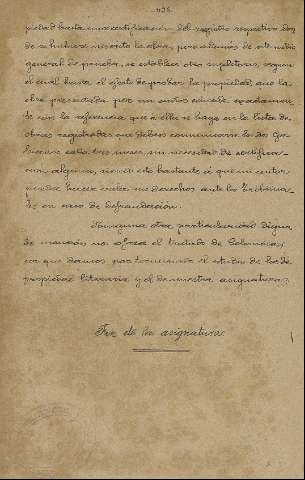 438
piedad basta una certificación del registro respectivo don
de se hubiese inscrito la obra, pero además de este medio
general de prueba, se establece otro supletorio, según
el cual basta al efecto de probar la propiedad, que la
obra presentada por un autor coincida exactamen
te con la referencia que a ella se haga en la lista de
obras registradas que deben comunicarse los dos Go
biernos cada tres meses, sin necesidad de certifica
ción alguna, siendo esto bastante a quien inten
tando hacer valer sus derechos ante los Tribuna
les en caso de defraudación.
Ninguna otra particularidad digna
de mención nos ofrece el tratado de Colombia,
con que damos por terminado el estudio de los de
propiedad literaria y el de nuestra asignatura.
Fin de la asignatura